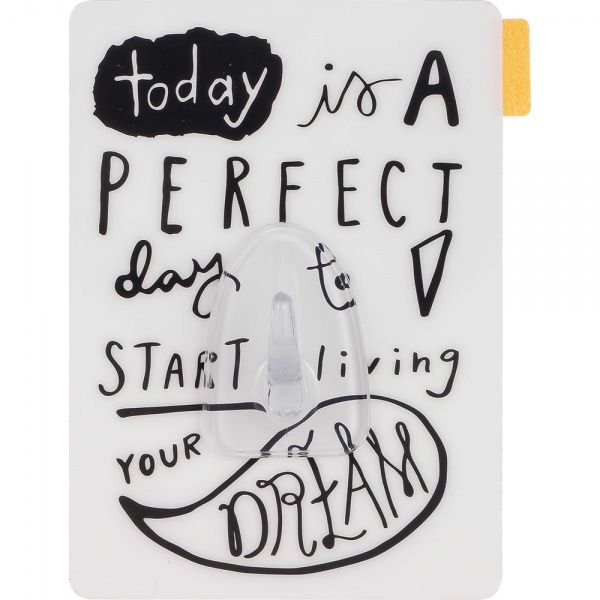 today is A
PERFECT
day to
START living
YOUR
DREAM